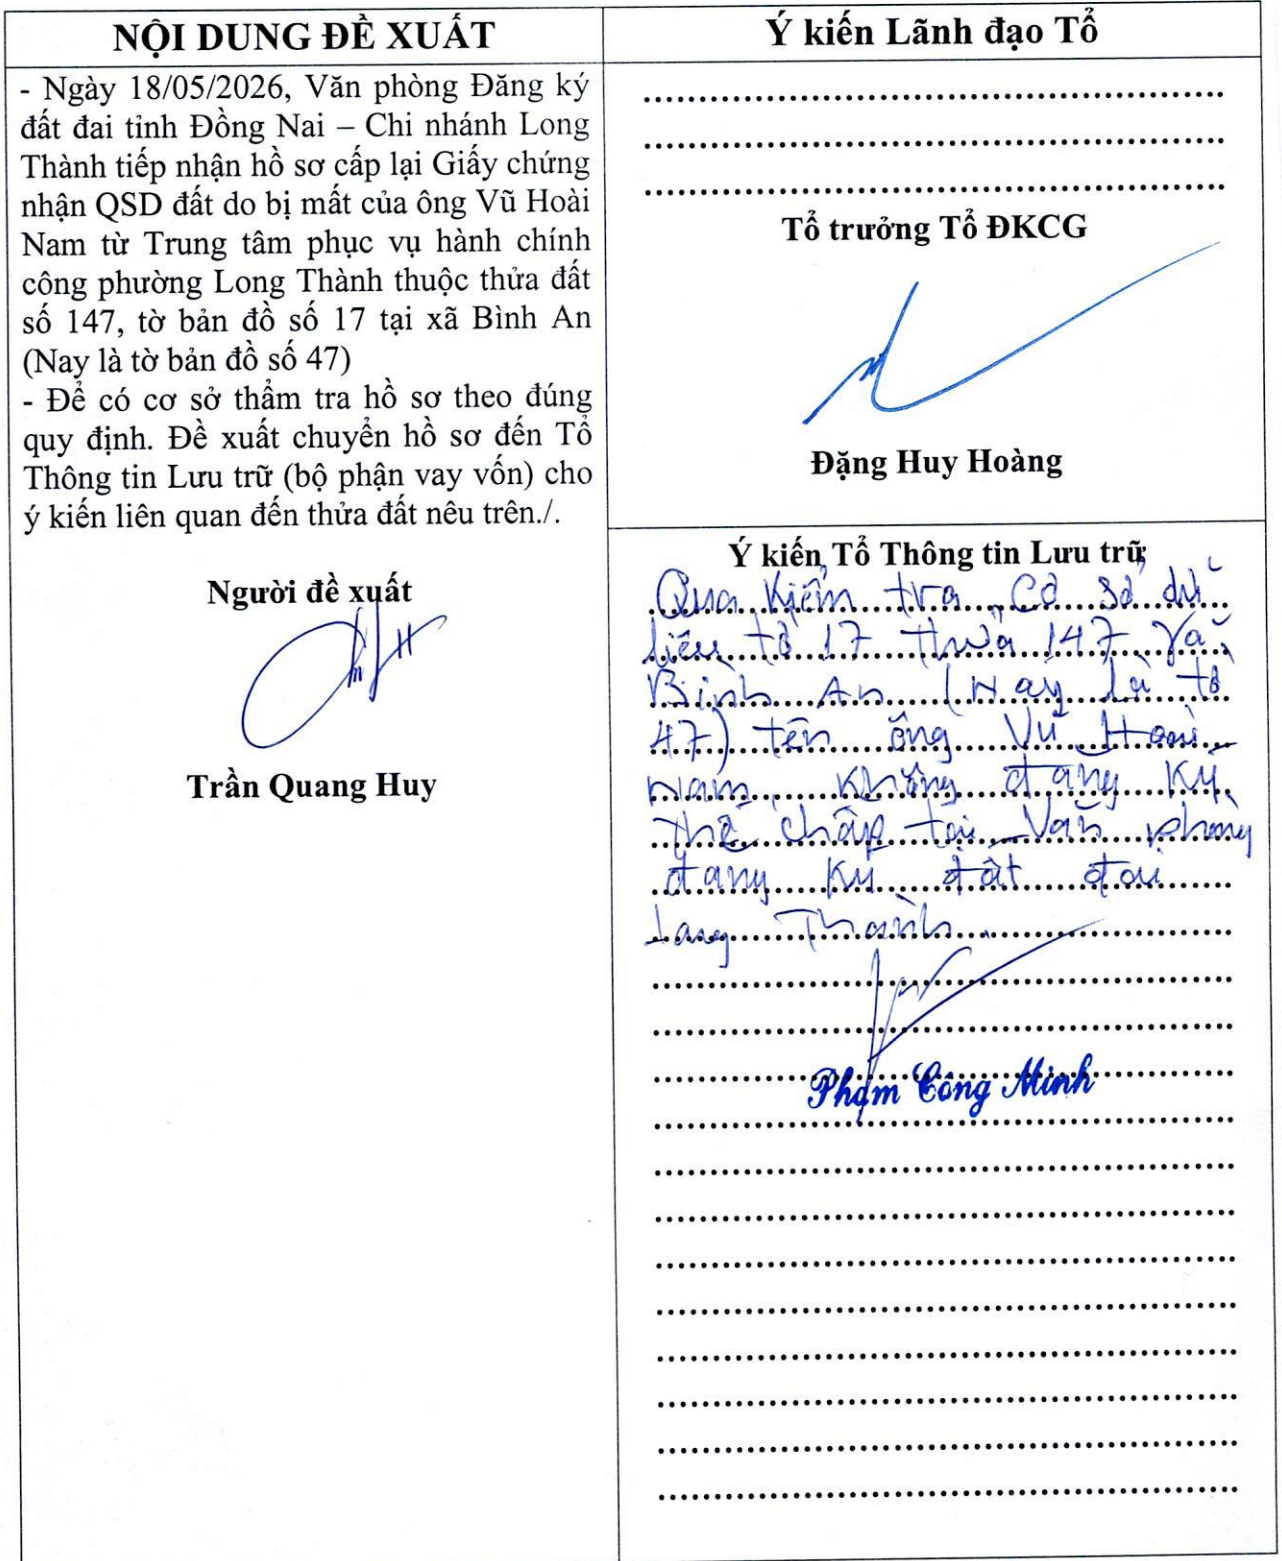 NỘI DUNG ĐỀ XUẤT
- Ngày 18/05/2026, Văn phòng Đăng ký
đất đai tỉnh Đồng Nai – Chi nhánh Long
Thành tiếp nhận hồ sơ cấp lại Giấy chứng
nhận QSD đất do bị mất của ông Vũ Hoài
Nam từ Trung tâm phục vụ hành chính
công phường Long Thành thuộc thửa đất
số 147, tờ bản đồ số 17 tại xã Bình An
(Nay là tờ bản đồ số 47)
- Để có cơ sở thẩm tra hồ sơ theo đúng
quy định. Đề xuất chuyển hồ sơ đến Tổ
Thông tin Lưu trữ (bộ phận vay vốn) cho
ý kiến liên quan đến thửa đất nêu trên./.
Người đề xuất
Trần Quang Huy
Ý kiến Lãnh đạo Tổ
Tổ trưởng Tổ ĐKCG
Đặng Huy Hoàng
Ý kiến Tổ Thông tin Lưu trữ
Qua kiểm tra cơ sở dữ
liệu tờ 17 thửa 147 xã
Bình An (Nay là tờ
47) tên ông Vũ Hoài
Nam không đăng ký
thế chấp tại Văn phòng
đăng ký đất đai
Long Thành
Phạm Công Minh